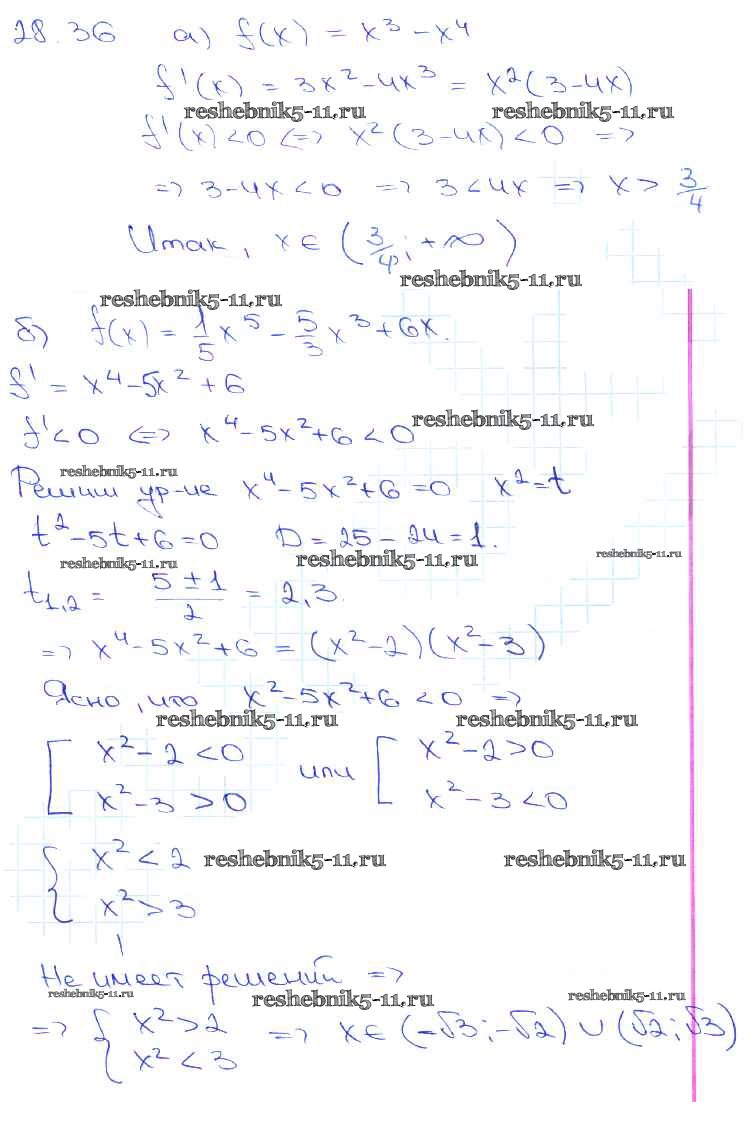 28.36 а) f(x) = x³ - x⁴
f'(x) = 3x² - 4x³ = x²(3 - 4x)
reshebnik5-11.ru reshebnik5-11.ru
f'(x) < 0 <=> x²(3 - 4x) < 0 =>
=> 3 - 4x < 0 => 3 < 4x => x > 3/4
Итак, x ∈ (3/4; +∞)
reshebnik5-11.ru
reshebnik5-11.ru
б) f(x) = 1/5 x⁵ - 5/3 x³ + 6x.
f' = x⁴ - 5x² + 6
reshebnik5-11.ru
f' < 0 <=> x⁴ - 5x² + 6 < 0
reshebnik5-11.ru
Решим ур-ие x⁴ - 5x² + 6 = 0 x² = t
t² - 5t + 6 = 0 D = 25 - 24 = 1.
reshebnik5-11.ru reshebnik5-11.ru reshebnik5-11.ru
t₁,₂ = (5 ± 1)/2 = 2,3.
=> x⁴ - 5x² + 6 = (x² - 2)(x² - 3)
Ясно, что x² - 5x² + 6 < 0 =>
reshebnik5-11.ru reshebnik5-11.ru
[ x² - 2 < 0 или [ x² - 2 > 0
x² - 3 > 0 x² - 3 < 0
{ x² < 2 reshebnik5-11.ru reshebnik5-11.ru
x² > 3
Не имеет решений =>
reshebnik5-11.ru reshebnik5-11.ru reshebnik5-11.ru
=> { x² > 2 => x ∈ (-√3; -√2) ∪ (√2; √3)
x² < 3